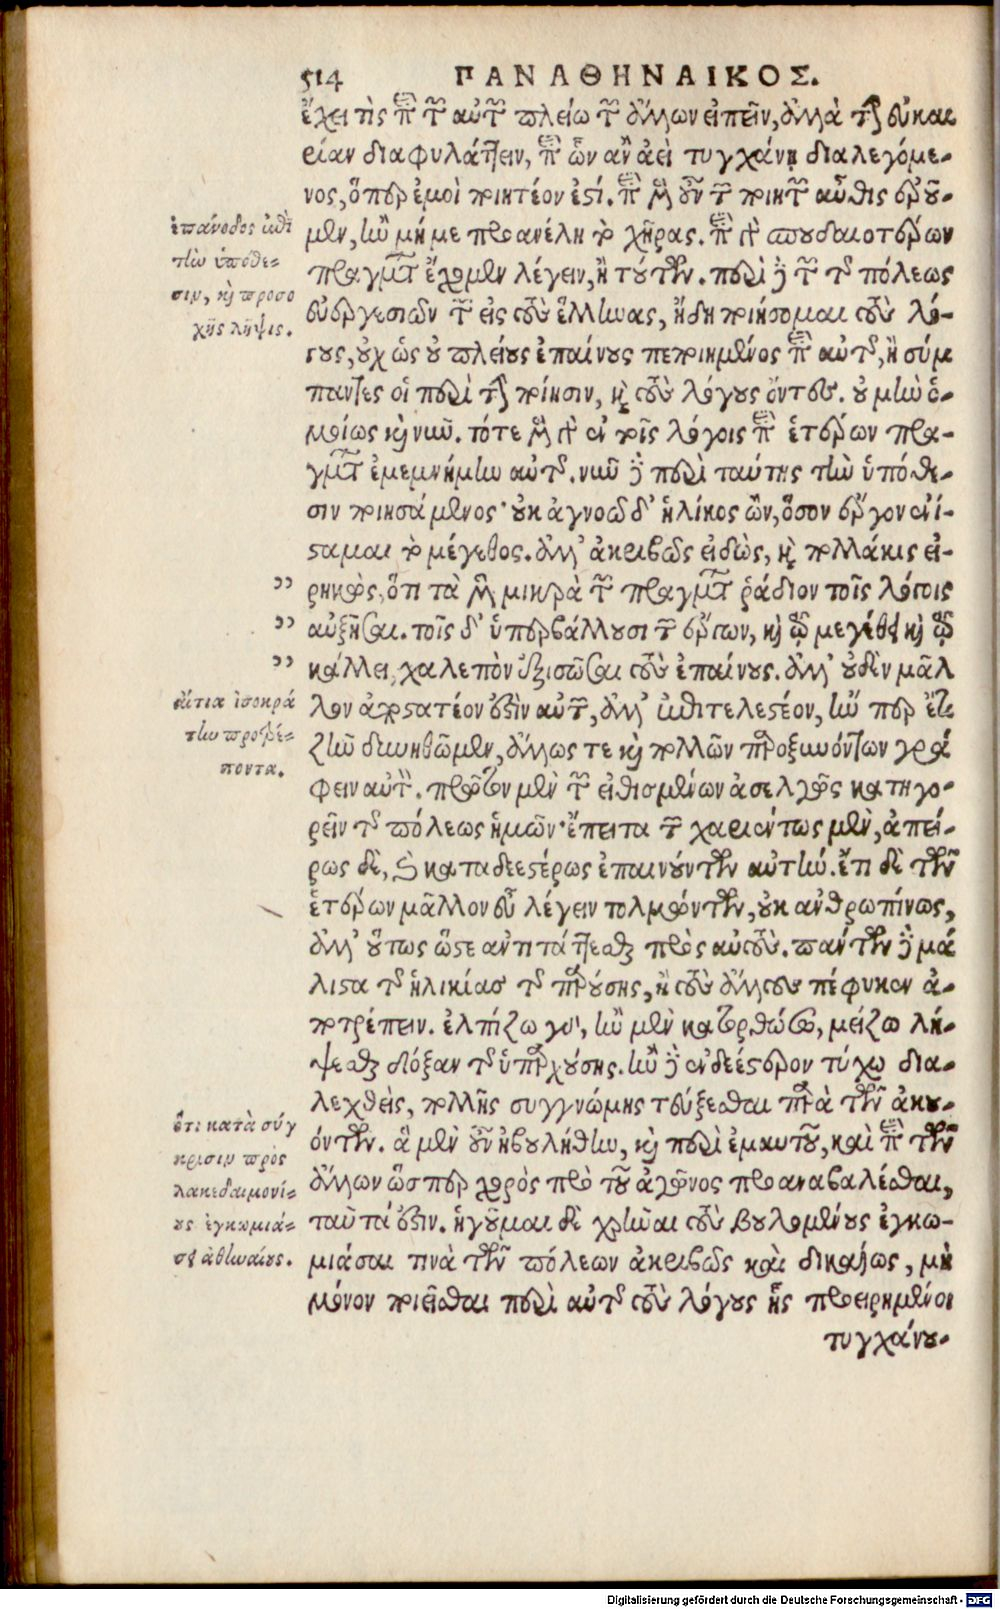 514 ΠΑΝΑΘΗΝΑΙΚΟΣ.
ἔχει τὶς περὶ τῶν αὐτῶν πλείω τῶν ἄλλων εἰπεῖν, ἀλλὰ τὴν εὐκαι
ρίαν διαφυλάττειν, περὶ ὧν ἂν ἀεὶ τυγχάνῃ διαλεγόμε-
νος, ὅπερ ἐμοὶ ποιητέον ἐστί. περὶ μὲν οὖν τῶν ποιητῶν αὖθις ἐροῦ-
μεν, ἢν μή με προανέλῃ τὸ γῆρας. περὶ γὰρ σπουδαιοτέρων
πραγμάτων ἔχομεν λέγειν, ἢ τούτων. περὶ δὲ τῶν τῆς πόλεως
εὐεργεσιῶν τῶν εἰς τοὺς ἕλληνας, ἤδη ποιήσομαι τοὺς λό-
γους, οὐχ ὡς οὐ πλείους ἐπαίνους πεποιημένος περὶ αὐτῆς, ἢ σύμ
παντες οἱ περὶ τὴν ποίησιν, καὶ τοὺς λόγους ὄντες. οὐ μὴν ὁ-
μοίως καὶ νῦν. τότε μὲν γὰρ ἐν τοῖς λόγοις περὶ ἑτέρων πρα-
γμάτων ἐμεμνήμην αὐτῆς. νῦν δὲ περὶ ταύτης τὴν ὑπόθε-
σιν ποιησάμενος· οὐκ ἀγνοῶ δ' ἡλίκος ὢν, ὅσον ἔργον ἐνί-
σταμαι τὸ μέγεθος. ἀλλ' ἀκριβῶς εἰδὼς, καὶ πολλάκις εἰ-
" ρηκὼς, ὅτι τὰ μὲν μικρὰ τῶν πραγμάτων ῥάδιον τοῖς λόγοις
" αὐξῆσαι. τοῖς δ' ὑπερβάλλουσι τῶν ἔργων, καὶ τῷ μεγέθει καὶ τῷ
" κάλλει, χαλεπὸν ἐξισῶσαι τοὺς ἐπαίνους. ἀλλ' οὐδὲν μᾶλ
λον ἀποστατέον ἐστὶν αὐτῶν, ἀλλ' ἐπιτελεστέον, ἤν περ ἔτι
ζῆν δυνηθῶμεν, ἄλλως τε καὶ πολλῶν παροξυνόντων γρά
φειν αὐτόν. πρῶτον μὲν τῶν εἰθισμένων ἀσελγῶς κατηγο-
ρεῖν τῆς πόλεως ἡμῶν· ἔπειτα τῶν χαριέντως μὲν, ἀπεί-
ρως δὲ, καὶ καταδεεστέρως ἐπαινούντων αὐτήν. ἔτι δὲ τῶν
ἑτέρων μᾶλλον εὖ λέγειν τολμώντων, οὐκ ἀνθρωπίνως,
ἀλλ' οὕτως ὥστε ἀντιτάττεσθαι πρὸς αὐτούς. πάντων δὲ μά
λιστα τῆς ἡλικίας τῆς παρούσης, ἣ τοὺς ἄλλους πέφυκεν ἀ-
ποτρέπειν. ἐλπίζω γὰρ, ἢν μὲν κατορθώσω, μείζω λή-
ψεσθαι δόξαν τῆς ὑπαρχούσης. ἢν δὲ ἐνδεέστερον τύχω δια-
λεχθεὶς, πολλῆς συγγνώμης τεύξεσθαι παρὰ τῶν ἀκου-
όντων. ἃ μὲν οὖν ἠβουλήθην, καὶ περὶ ἐμαυτοῦ, καὶ περὶ τῶν
ἄλλων ὥσπερ χορὸς πρὸ τοῦ ἀγῶνος προαναβαλέσθαι,
ταῦτά ἐστιν. ἡγοῦμαι δὲ χρῆναι τοὺς βουλομένους ἐγκω-
μιάσαι τινὰ τῶν πόλεων ἀκριβῶς καὶ δικαίως, μὴ
μόνον ποιεῖσθαι περὶ αὐτῆς τοὺς λόγους ἧς προειρημένοι
τυγχάνου-
ἐπάνοδος ἐπὶ
τὴν ὑπόθε-
σιν, καὶ προσο
χῆς λῆψις.
αἴτια ἰσοκρά
την προτρέ-
ποντα.
ὅτι κατὰ σύγ
κρισιν πρὸς
λακεδαιμονί-
ους ἐγκωμιά-
σει ἀθηναίους.
Digitalisierung gefördert durch die Deutsche Forschungsgemeinschaft - DFG